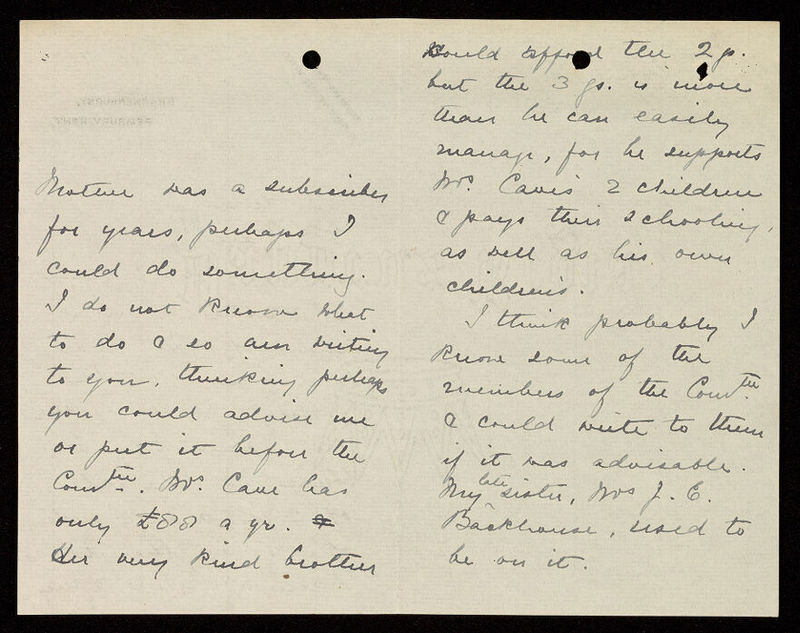 Mother was a subscriber
for years, perhaps I
could do something.
I do not know what
to do & so am writing
to you, thinking perhaps
you could advise me
or put it before the
Comtee. Mrs. Cave has
only £88 a yr.
Her very kind brother
could afford the 2 g.
but the 3 gs. is more
than he can easily
manage, for he supports
Mrs. Cave's 2 children
& pays their schooling,
as well as his own
children's.
I think probably I
know some of the
members of the Comtee.
& could write to them
if it was advisable.
My late sister, Mrs J. E.
Backhouse, used to
be on it.